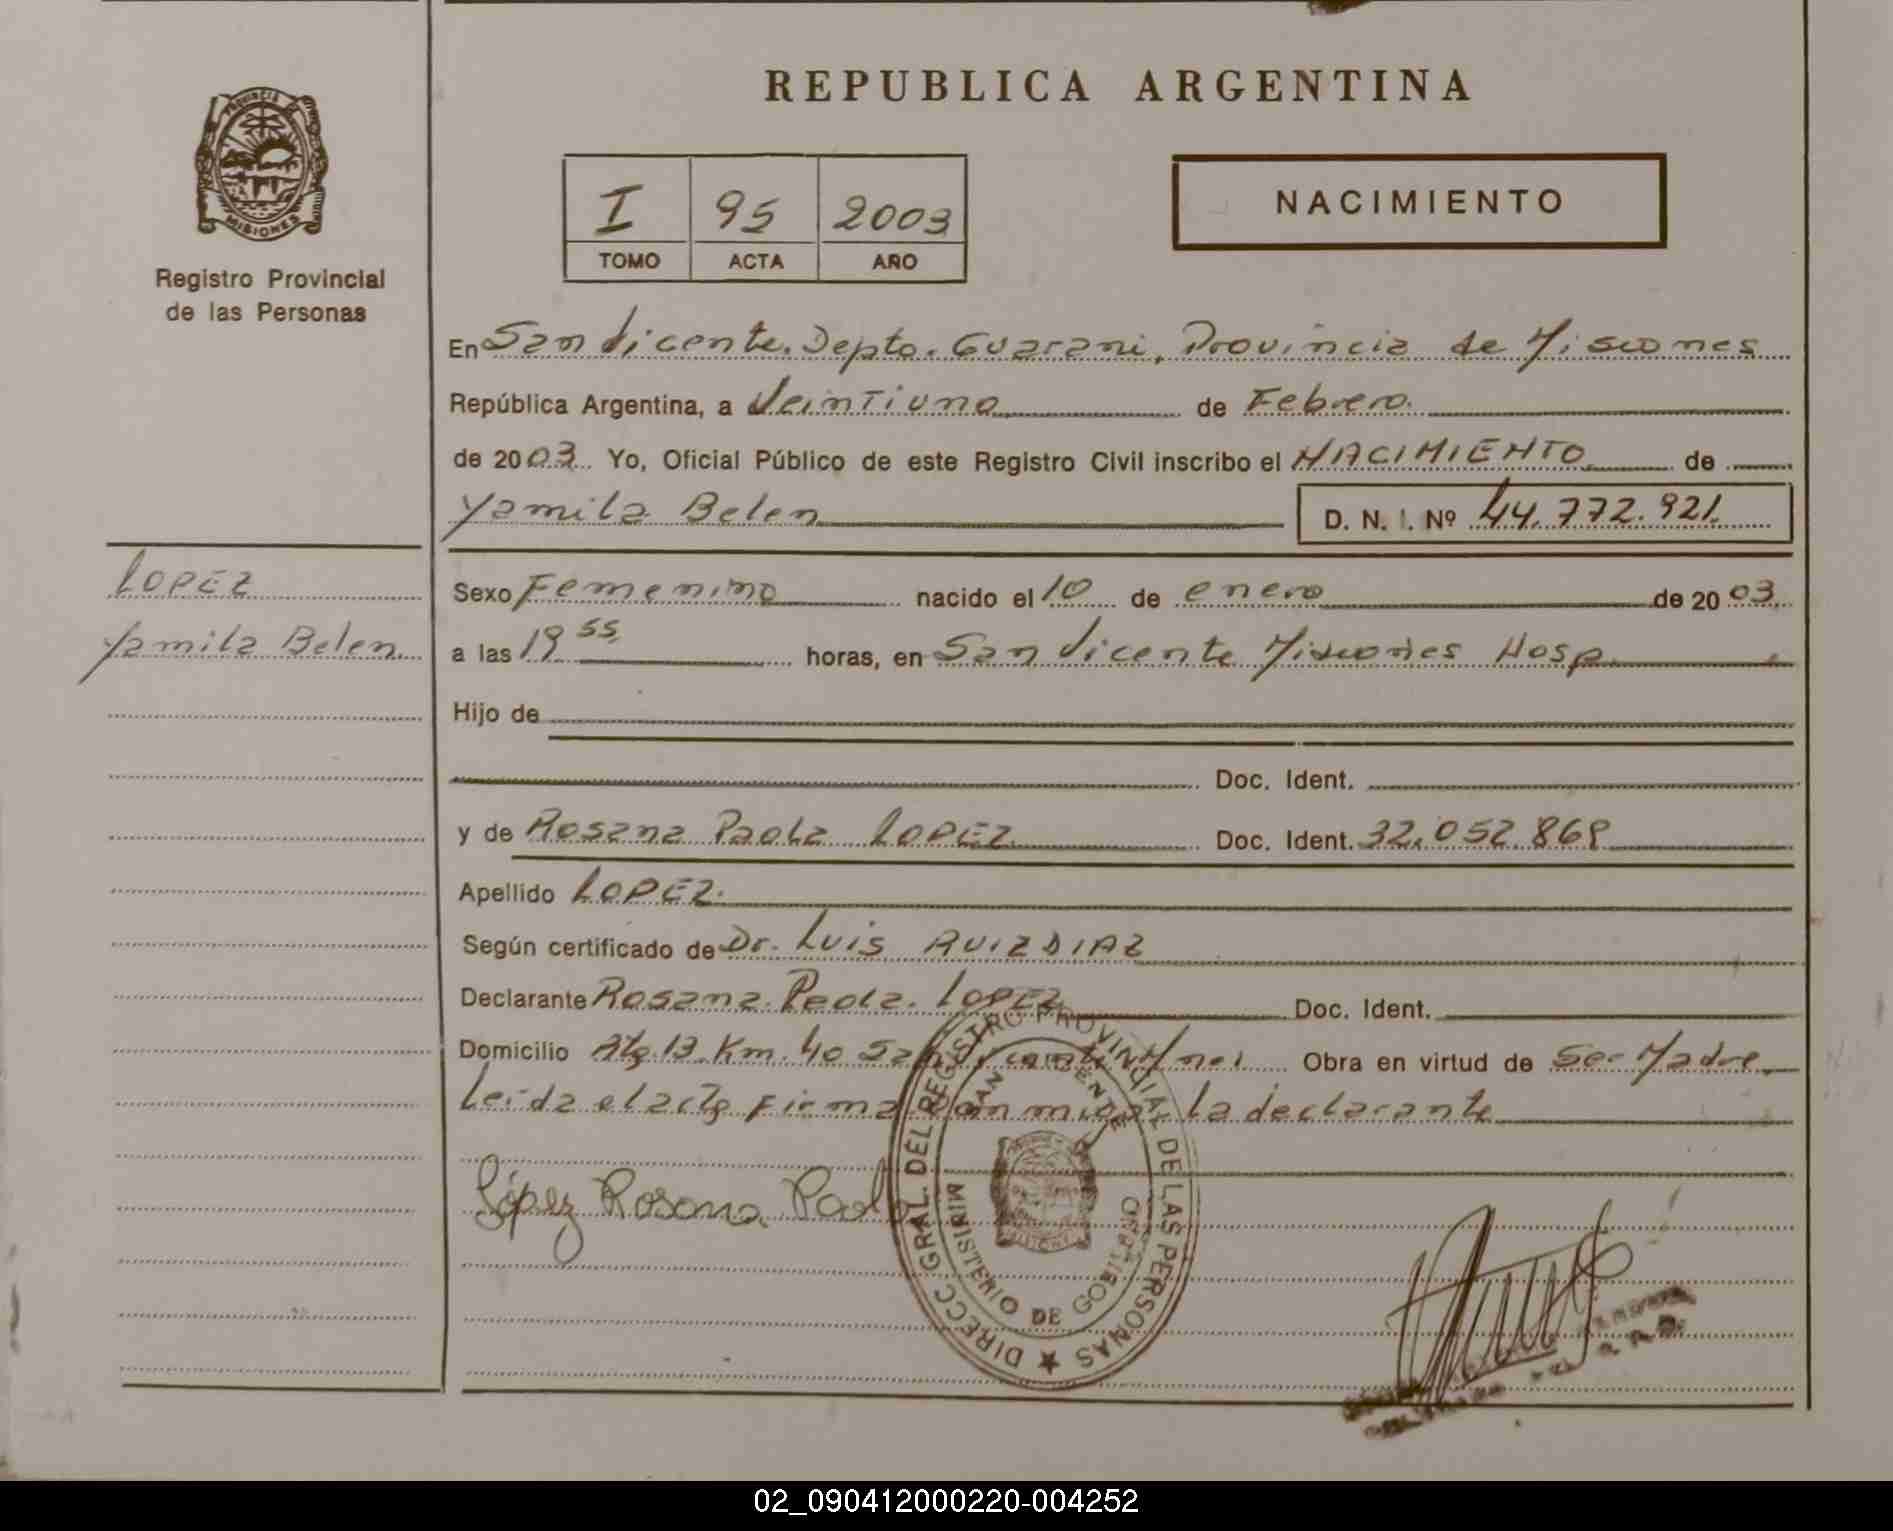 REPUBLICA ARGENTINA
PROVINCIA
MISIONES
Registro Provincial
de las Personas
I 95 2003
TOMO ACTA AÑO
NACIMIENTO
En San Vicente. Depto. Guarani, Provincia de Misiones
República Argentina, a Veintiuno de Febrero.
de 2003 Yo, Oficial Público de este Registro Civil inscribo el NACIMIENTO de
Yamila Belen D. N. I. Nº 44.772.921.
LOPEZ
Yamila Belen
Sexo Femenino nacido el 10 de enero de 2003
a las 19 55 horas, en San Vicente Misiones Hosp.
Hijo de
Doc. Ident.
y de Rosana Paola LOPEZ Doc. Ident. 32.052.869
Apellido LOPEZ.
Según certificado de Dr. Luis RUIZ DIAZ
Declarante Rosana Paola LOPEZ Doc. Ident.
Domicilio Rta 13 Km. 40 San Vicente Mnes Obra en virtud de Ser Madre.
Leida el acta Firma con migo la declarante
López Rosana Paol
DIRECC. GRAL. DEL REGISTRO PROVINCIAL DE LAS PERSONAS
SAN VICENTE
MINISTERIO DE GOBIERNO
02_090412000220-004252